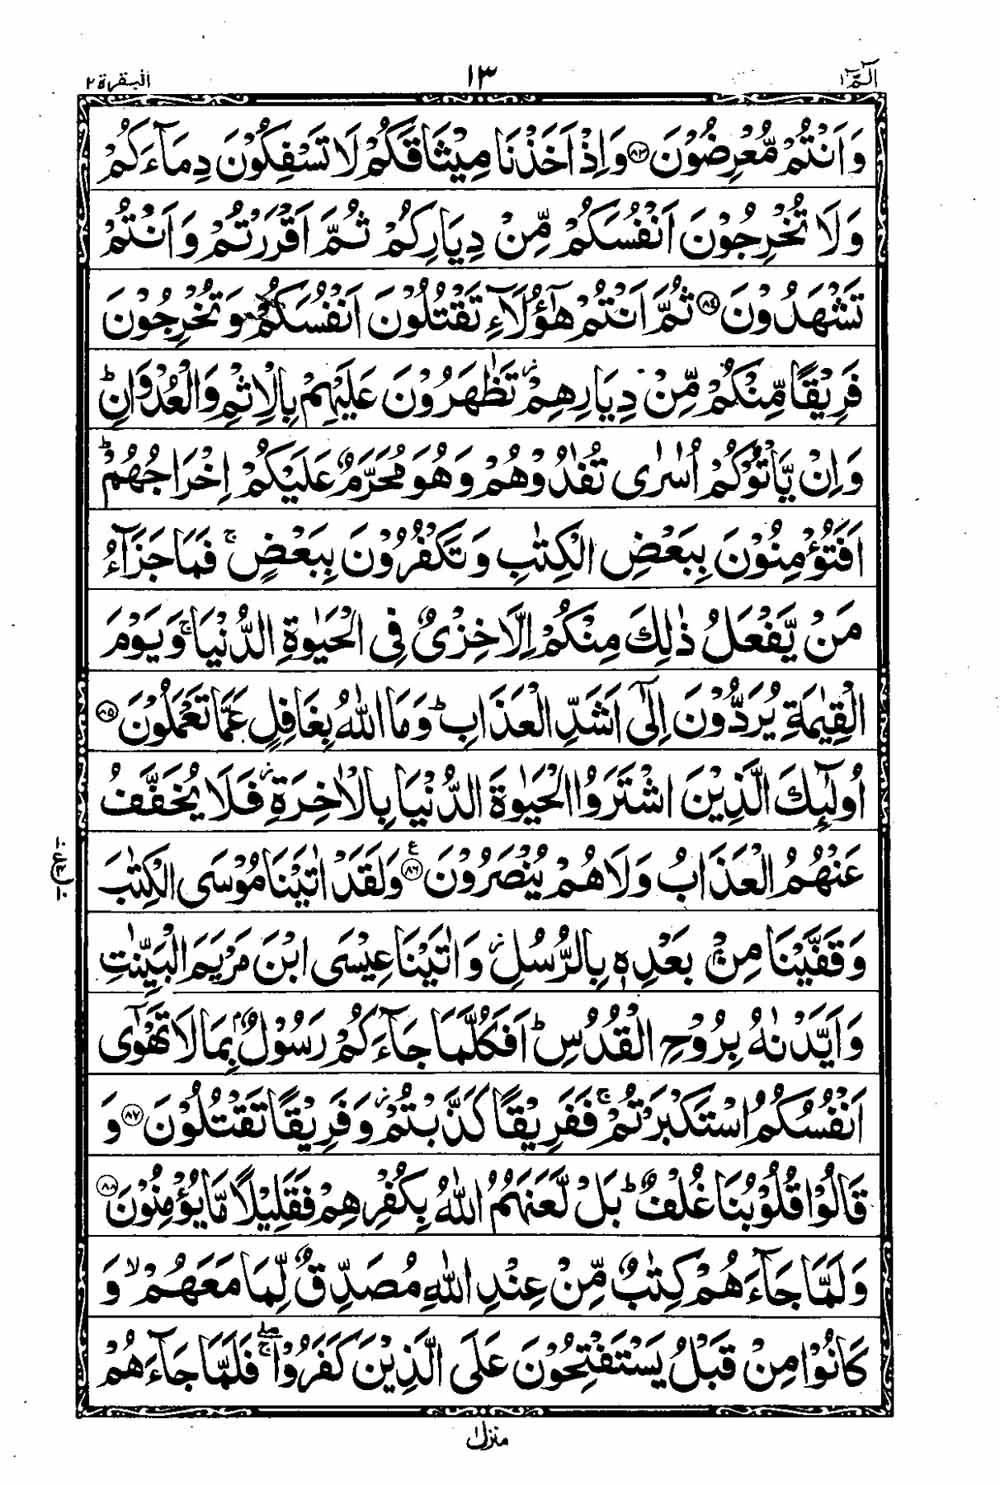 الٓمّٓ ١ ١٣ البقرة ٢
وَاَنْتُمْ مُّعْرِضُوْنَ ﴿۸۳﴾ وَاِذْ اَخَذْنَا مِيْثَاقَكُمْ لَا تَسْفِكُوْنَ دِمَآءَكُمْ
وَلَا تُخْرِجُوْنَ اَنْفُسَكُمْ مِّنْ دِيَارِكُمْ ثُمَّ اَقْرَرْتُمْ وَاَنْتُمْ
تَشْهَدُوْنَ ﴿۸۴﴾ ثُمَّ اَنْتُمْ هٰٓؤُلَآءِ تَقْتُلُوْنَ اَنْفُسَكُمْ وَتُخْرِجُوْنَ
فَرِيْقًا مِّنْكُمْ مِّنْ دِيَارِهِمْ ز تَظٰهَرُوْنَ عَلَيْهِمْ بِالْاِثْمِ وَالْعُدْوَانِ ؕ
وَاِنْ يَّاْتُوْكُمْ اُسٰرٰى تُفٰدُوْهُمْ وَهُوَ مُحَرَّمٌ عَلَيْكُمْ اِخْرَاجُهُمْ ؕ
اَفَتُؤْمِنُوْنَ بِبَعْضِ الْكِتٰبِ وَتَكْفُرُوْنَ بِبَعْضٍ ۚ فَمَا جَزَآءُ
مَنْ يَّفْعَلُ ذٰلِكَ مِنْكُمْ اِلَّا خِزْىٌ فِى الْحَيٰوةِ الدُّنْيَا ۚ وَيَوْمَ
الْقِيٰمَةِ يُرَدُّوْنَ اِلٰٓى اَشَدِّ الْعَذَابِ ؕ وَمَا اللّٰهُ بِغَافِلٍ عَمَّا تَعْمَلُوْنَ ﴿۸۵﴾
اُولٰٓئِكَ الَّذِيْنَ اشْتَرَوُا الْحَيٰوةَ الدُّنْيَا بِالْاٰخِرَةِ ز فَلَا يُخَفَّفُ
عَنْهُمُ الْعَذَابُ وَلَا هُمْ يُنْصَرُوْنَ ﴿۸۶﴾ ع وَلَقَدْ اٰتَيْنَا مُوْسَى الْكِتٰبَ
وَقَفَّيْنَا مِنْۢ بَعْدِهٖ بِالرُّسُلِ ز وَاٰتَيْنَا عِيْسَى ابْنَ مَرْيَمَ الْبَيِّنٰتِ
وَاَيَّدْنٰهُ بِرُوْحِ الْقُدُسِ ؕ اَفَكُلَّمَا جَآءَكُمْ رَسُوْلٌۢ بِمَا لَا تَهْوٰٓى
اَنْفُسُكُمُ اسْتَكْبَرْتُمْ ۚ فَفَرِيْقًا كَذَّبْتُمْ ز وَفَرِيْقًا تَقْتُلُوْنَ ﴿۸۷﴾ وَ
قَالُوْا قُلُوْبُنَا غُلْفٌ ؕ بَلْ لَّعَنَهُمُ اللّٰهُ بِكُفْرِهِمْ فَقَلِيْلًا مَّا يُؤْمِنُوْنَ ﴿۸۸﴾
وَلَمَّا جَآءَهُمْ كِتٰبٌ مِّنْ عِنْدِ اللّٰهِ مُصَدِّقٌ لِّمَا مَعَهُمْ ۙ وَ
كَانُوْا مِنْ قَبْلُ يَسْتَفْتِحُوْنَ عَلَى الَّذِيْنَ كَفَرُوْا ۖۚ فَلَمَّا جَآءَهُمْ
منزل ١